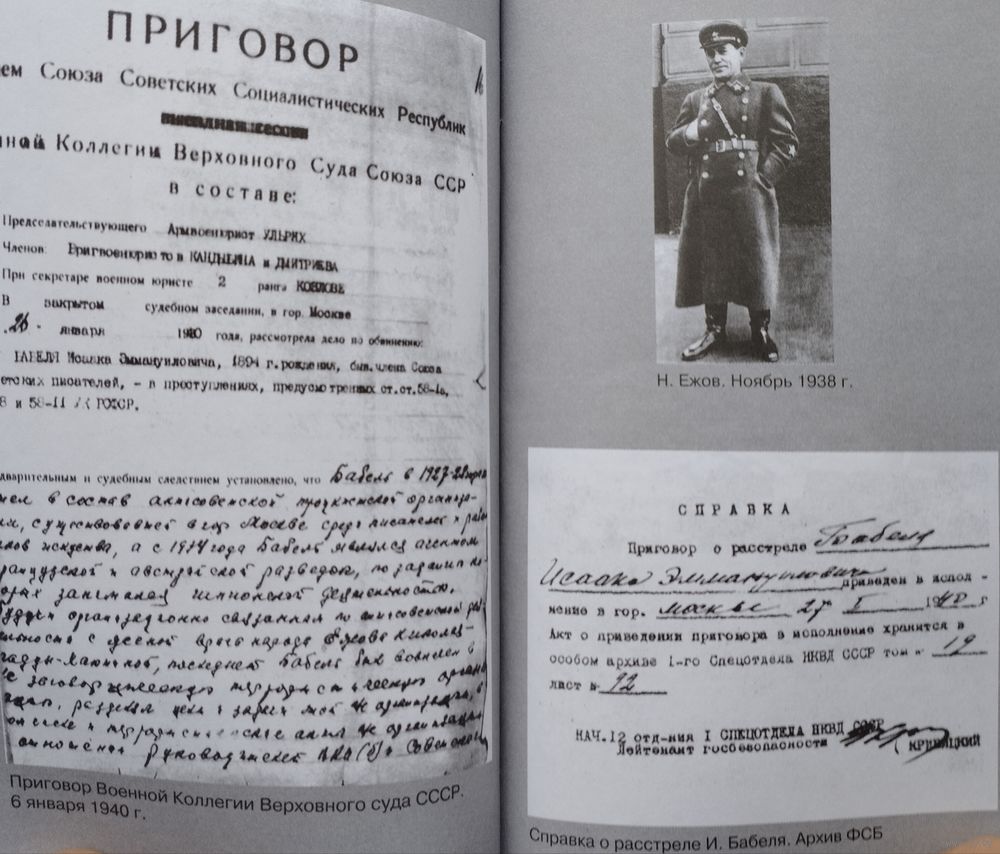 ПРИГОВОР
ем Союза Советских Социалистических Республик
ной Коллегии Верховного Суда Союза ССР
в составе:
Председательствующего Армвоенюрист УЛЬРИХ
Членов: Бригвоенюристов КАНДЫБИНА и ДМИТРИЕВА
При секретаре военном юристе 2 ранга КОЗЛОВЕ
В закрытом судебном заседании, в гор. Москве
26 - января 1940 года, рассмотрела дело по обвинению:
БАБЕЛЯ Исаака Эммануиловича, 1894 г. рождения, быв. члена Союза
етских писателей, - в преступлениях, предусмотренных ст.ст.58-1а,
8 и 58-11 УК РСФСР.
дварительным и судебным следствием установлено, что Бабель в 1927-28
в состав антисоветской троцкистской организа-
существовавшей в гор Москве среди писателей и
искусства, а с 1934 года Бабель являлся агентом
французской и австрийской разведок, по заданию
занимался шпионской деятельностью.
Будучи организационно связанным по антисоветской
с женой врага народа Ежова
последней Бабель был вовлечен в
заговорщическую террористическую
руководителей ВКП(б) и Советского
Приговор Военной Коллегии Верховного суда СССР.
6 января 1940 г.
Н. Ежов. Ноябрь 1938 г.
СПРАВКА
Приговор о расстреле Бабеля
Исаака Эммануиловича приведен в испол -
нение в гор. Москве 27 I 1940 г
Акт о приведении приговора в исполнение хранится в
особом архиве 1-го Спецотдела НКВД СССР том № 19
лист № 92
НАЧ.12 отд-ния I СПЕЦОТДЕЛА НКВД СССР
Лейтенант госбезопасности КРИВИЦКИЙ
Справка о расстреле И. Бабеля. Архив ФСБ